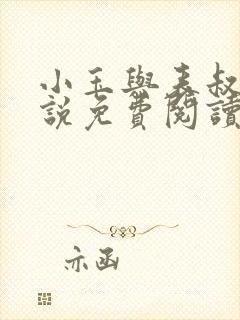 小玉與表叔
說免費閱讀
亦函